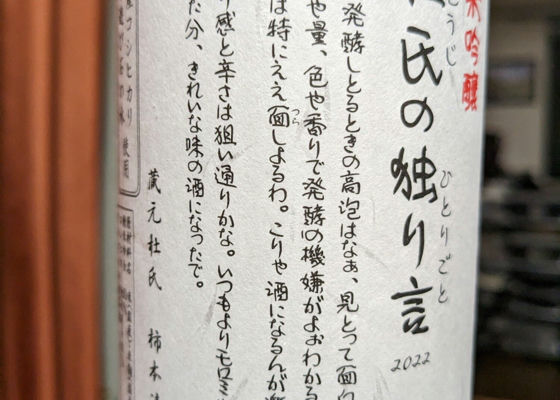 米吟醸
杜氏の独り言
とうじ
ひとりごと
2022
発酵しとるときの高泡はなぁ、見とって面白
や量、色や香りで発酵の機嫌がよぉわかる
は特にええ面しよるわ。こりゃ酒になるんが
つら
感と辛さは狙い通りかな。いつもよりモロミ
た分、きれいな味の酒になったで。
蔵元杜氏 柿本
コシヒカリ
使用